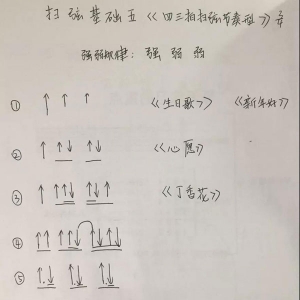 扫弦基础五《四三拍扫弦节奏型》
强弱规律：强 弱 弱
① ↑ ↑ ↑ 《生日歌》 《新年好》
② ↑ ↑↓ ↑↓ 《心愿》
③ ↑ ↑↑↓ ↑↓↑ 《丁香花》
④ ↑↑ ↑↑↓ ↑↓↑↓
⑤ ↑.↓ ↑↓ ↑↓